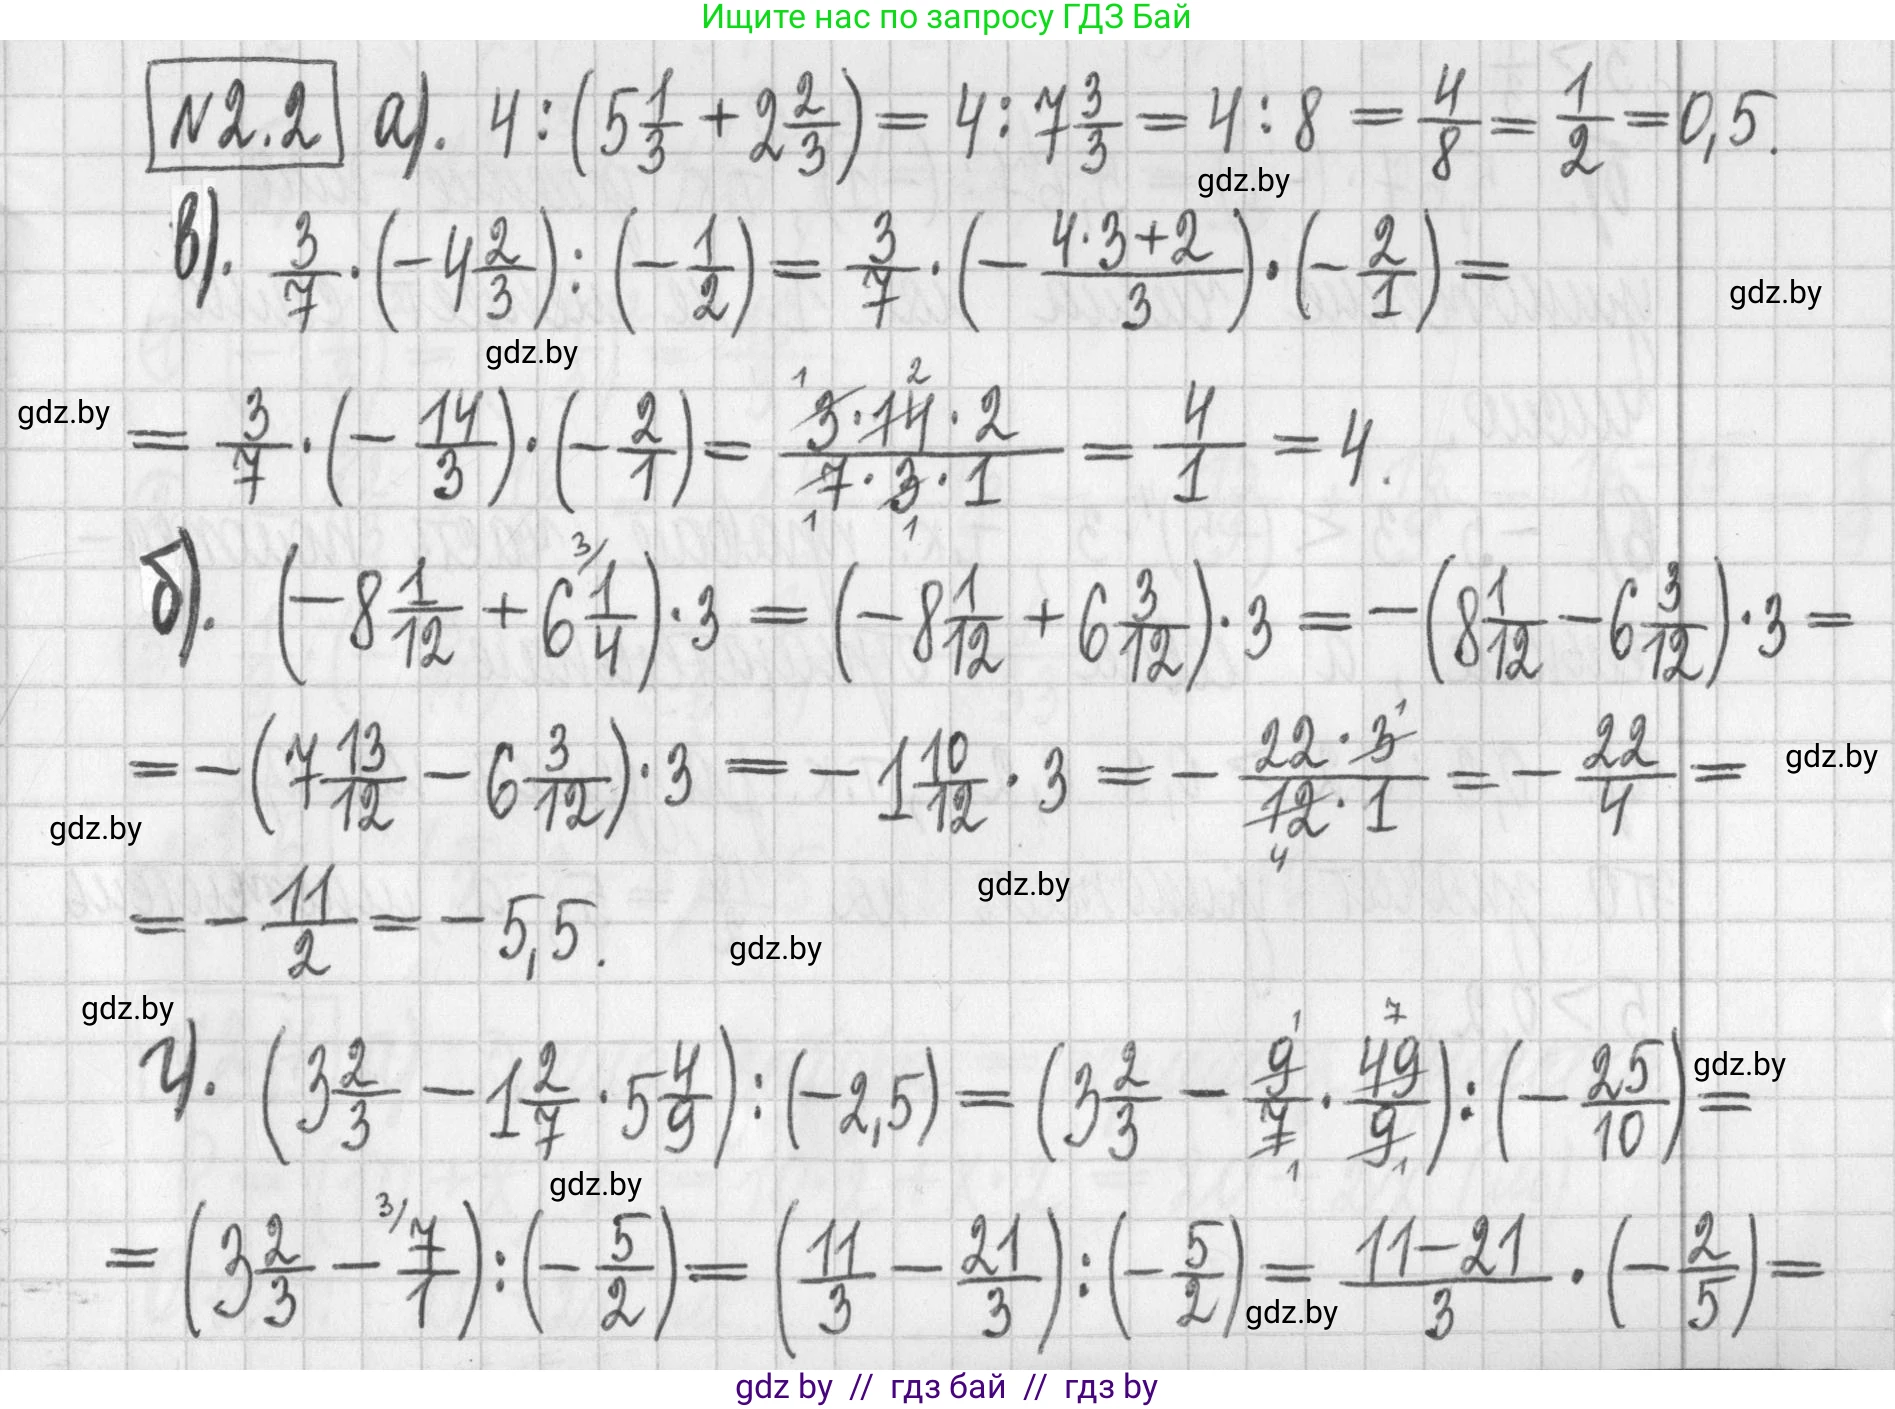 Ищите нас по запросу ГДЗ Бай
№2.2 а). 4:(5 1/3 + 2 2/3) = 4:7 3/3 = 4:8 = 4/8 = 1/2 = 0,5.
gdz.by
в). 3/7 · (-4 2/3) : (-1/2) = 3/7 · (- (4·3+2)/3) · (-2/1) =
gdz.by
gdz.by
gdz.by
= 3/7 · (-14/3) · (-2/1) = (3·14·2)/(7·3·1) = 4/1 = 4.
б). (-8 1/12 + 6 1/4) · 3 = (-8 1/12 + 6 3/12) · 3 = -(8 1/12 - 6 3/12) · 3 =
= -(7 13/12 - 6 3/12) · 3 = -1 10/12 · 3 = - (22·3)/(12·1) = - 22/4 =
gdz.by
gdz.by
gdz.by
= - 11/2 = -5,5.
gdz.by
gdz.by
г). (3 2/3 - 1 2/7 · 5 4/9) : (-2,5) = (3 2/3 - 9/7 · 49/9) : (-25/10) =
gdz.by
gdz.by
= (3 2/3 - 7/1) : (-5/2) = (11/3 - 21/3) : (-5/2) = (11-21)/3 · (-2/5) =
gdz.by
gdz by // гдз бай // гдз by